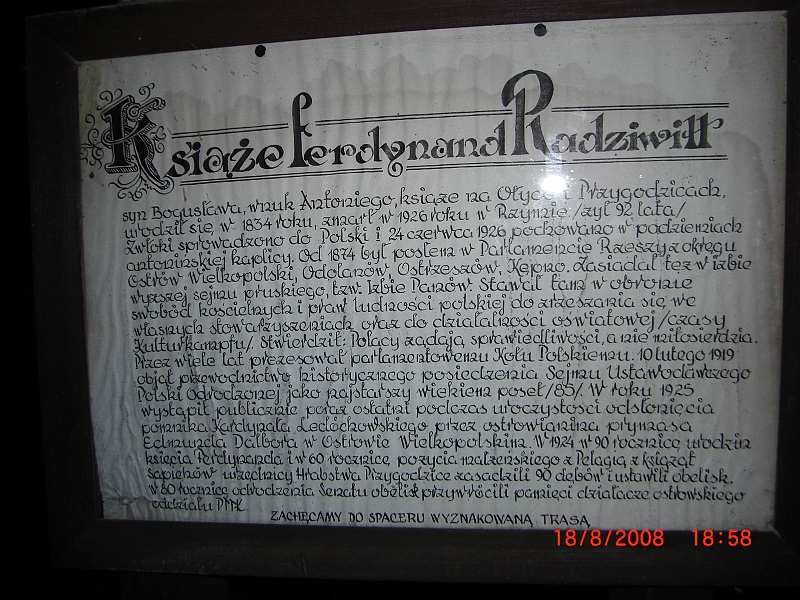 Książe Ferdynand Radziwiłł
syn Bogusława, wnuk Antoniego, książe na Ołyce i Przygodzicach,
urodził się w 1834 roku, zmarł w 1926 roku w Rzymie /żył 92 lata/
Zwłoki sprowadzono do Polski i 24 czerwca 1926 pochowano w podziemiach
antonińskiej kaplicy. Od 1874 był posłem w Parlamencie Rzeszy z okręgu
Ostrów Wielkopolski, Odolanów, Ostrzeszów, Kępno. Zasiadał też w izbie
wyższej sejmu pruskiego, tzw. Izbie Panów. Stawał tam w obronie
swobód kościelnych i praw ludności polskiej do zrzeszania się we
własnych stowarzyszeniach oraz do działalności oświatowej /czasy
Kulturkampfu/. Stwierdził: Polacy żądają sprawiedliwości, a nie miłosierdzia.
Przez wiele lat prezesował parlamentowemu Kołu Polskiemu. 10 lutego 1919
objął przewodnictwo historycznego posiedzenia Sejmu Ustawodawczego
Polski Odrodzonej jako najstarszy wiekiem poseł /85/. W roku 1925
wystąpił publicznie poraz ostatni podczas uroczystości odsłonięcia
pomnika Kardynała Ledóchowskiego przez ostrowianina prymasa
Edmunda Dalbora w Ostrowie Wielkopolskim. W 1924 w 90 rocznicę urodzin
księcia Ferdynanda i w 60 rocznicę pożycia małżeńskiego z Pelagią z książąt
Sapiehów urzędnicy Hrabstwa Przygodzice zasadzili 90 dębów i ustawili obelisk.
w 80 rocznicę odrodzenia Senatu obelisk przywrócili pamięci działacze ostrowskiego
oddziału PTTK
ZACHĘCAMY DO SPACERU WYZNAKOWANĄ TRASĄ
18/8/2008 18:58